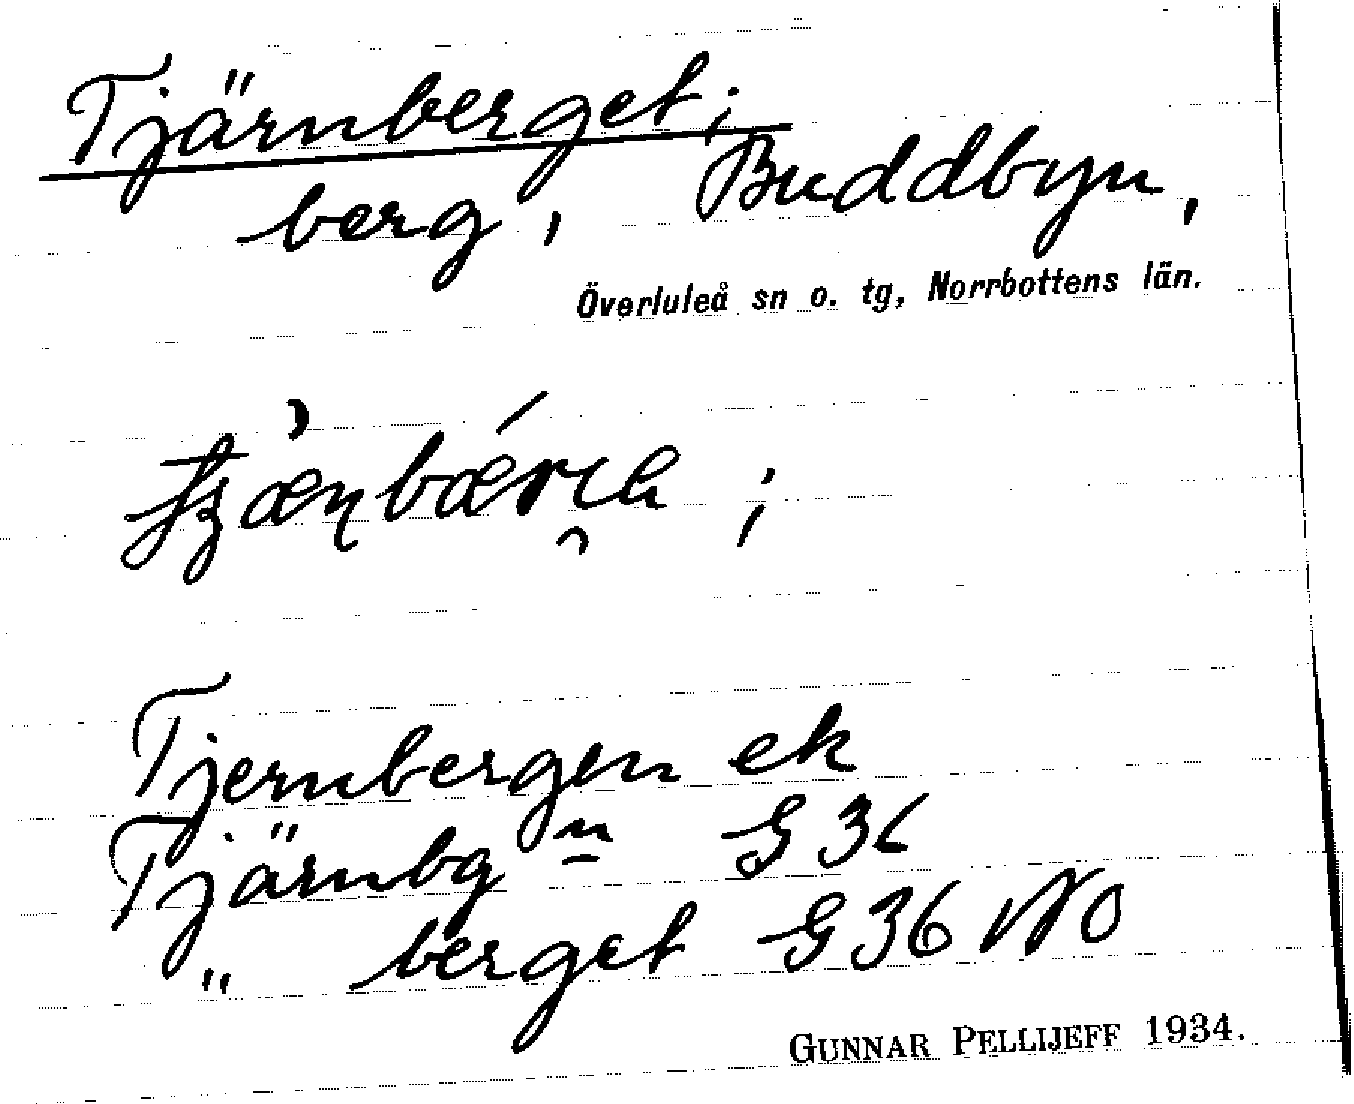 Tjärnberget;
berg, Buddbyn,
Överluleå sn o. tg, Norrbottens län.
Tjernbergen ek
Tjärnbgn G 36
" berget G 36 NO
GUNNAR PELLIJEFF 1934.